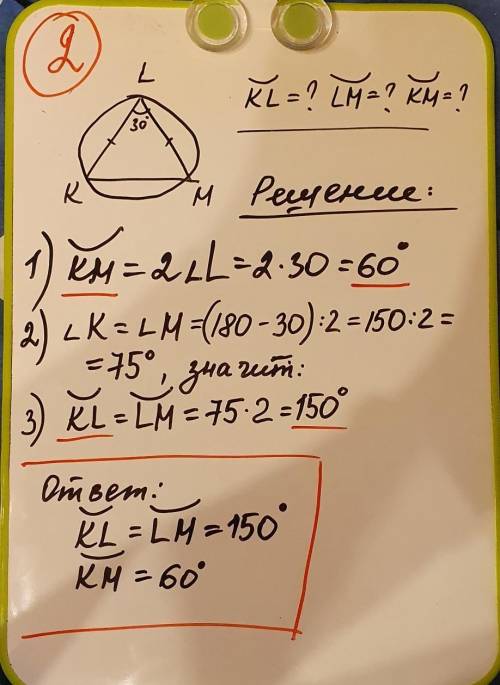 2
L
30°
K
M
K͝L = ? L͝M = ? K͝M = ?
Решение:
1) K͝M = 2∠L = 2·30 = 60°
2) ∠K = ∠M = (180 - 30) : 2 = 150 : 2 =
= 75°, значит:
3) K͝L = L͝M = 75·2 = 150°
Ответ:
K͝L = L͝M = 150°
K͝M = 60°